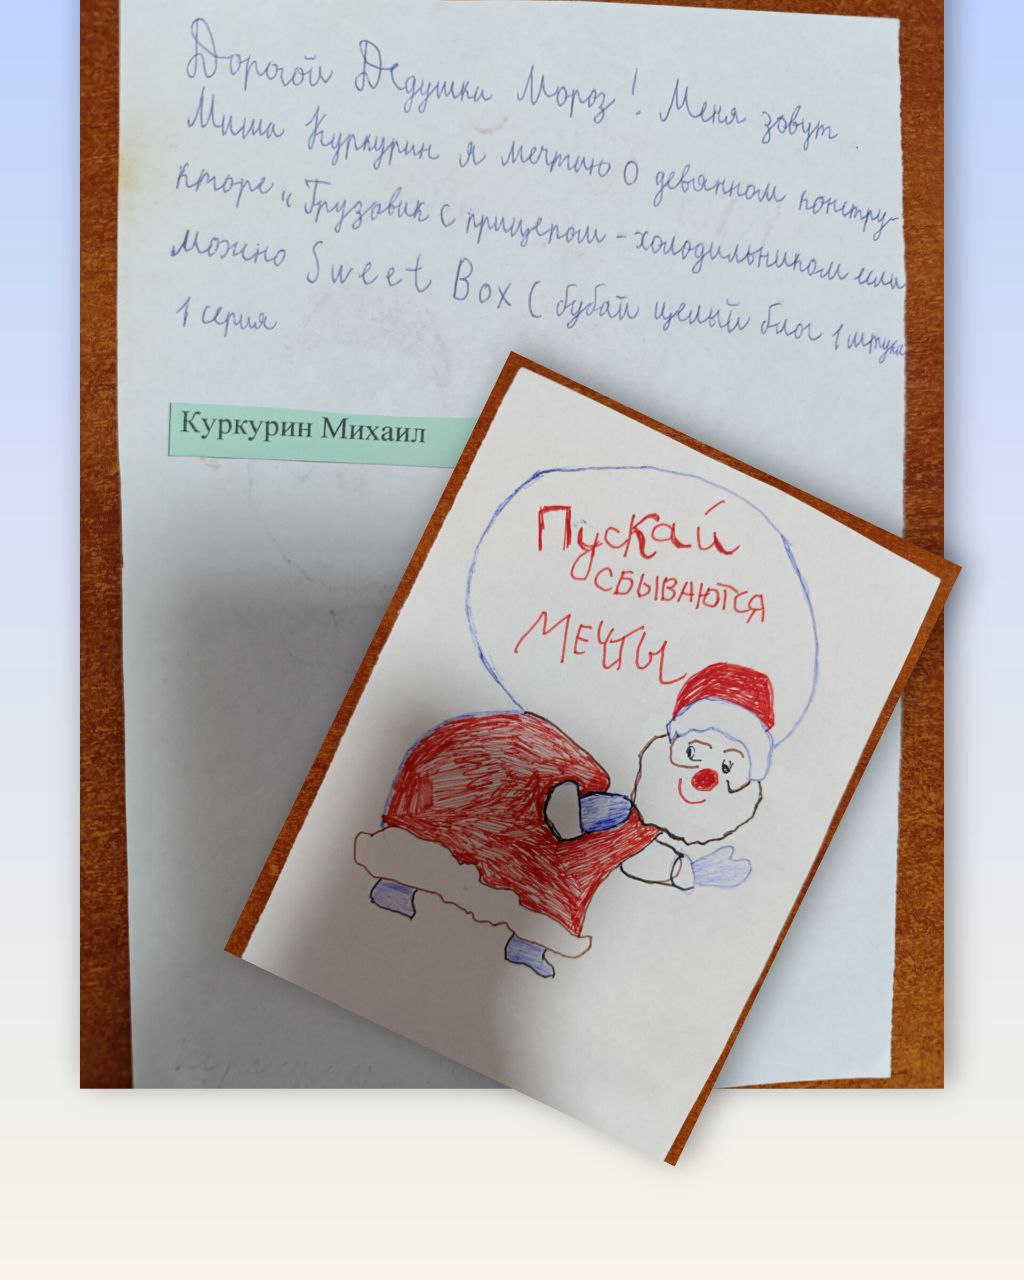 Дорогой Дедушка Мороз! Меня зовут
Миша Куркурин я мечтаю о девянном констру-
кторе „Грузовик с прицепом - холодильником если
можно Sweet Box ( бубай целый блог 1 штука
1 серия
Куркурин Михаил
Пускай
СБЫВАЮТСЯ
МЕЧТЫ